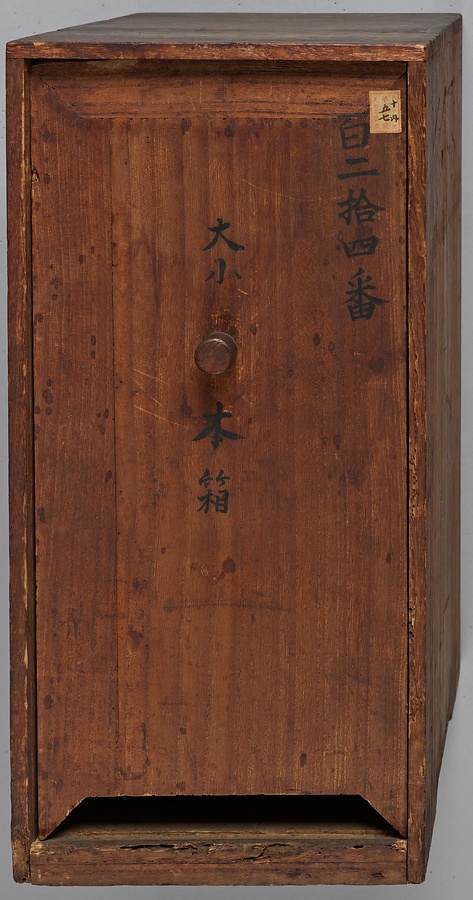 百二拾四番
大小
本箱
五七